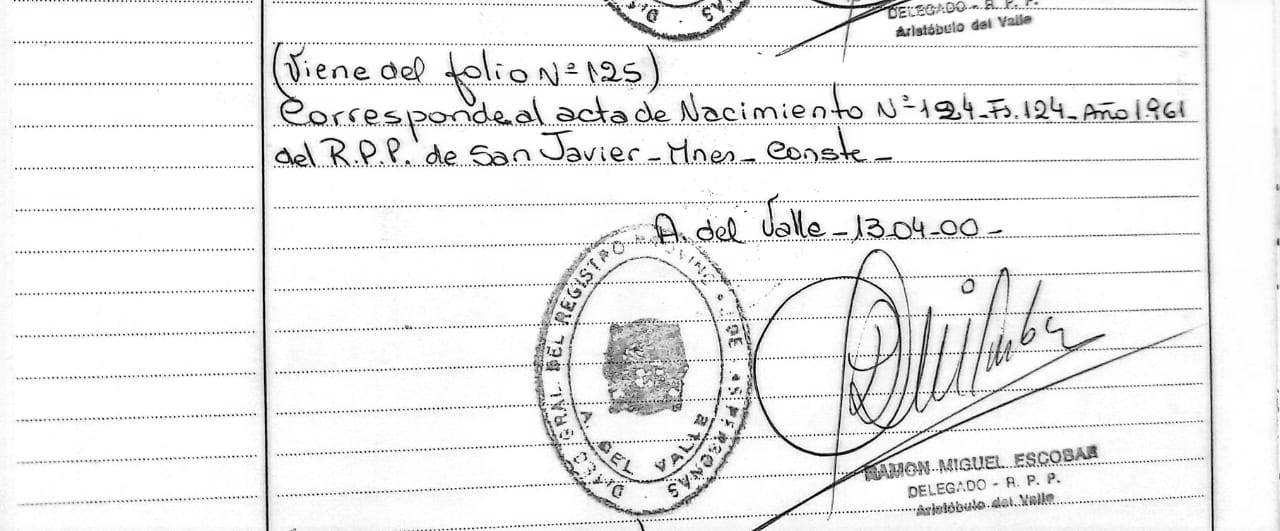 DELEGADO - R. P. P.
Aristóbulo del Valle
(Viene del folio Nº 125)
Corresponde al acta de Nacimiento Nº 124_Fs. 124_Año 1.961
del R.P.P. de San Javier_Mnes_Conste_
A. del Valle_13_04_00_
DIREC. GRAL. DEL REGISTRO PROVINC. DE LAS PERSONAS
A. DEL VALLE
RAMON MIGUEL ESCOBAR
DELEGADO - R. P. P.
Aristóbulo del Valle